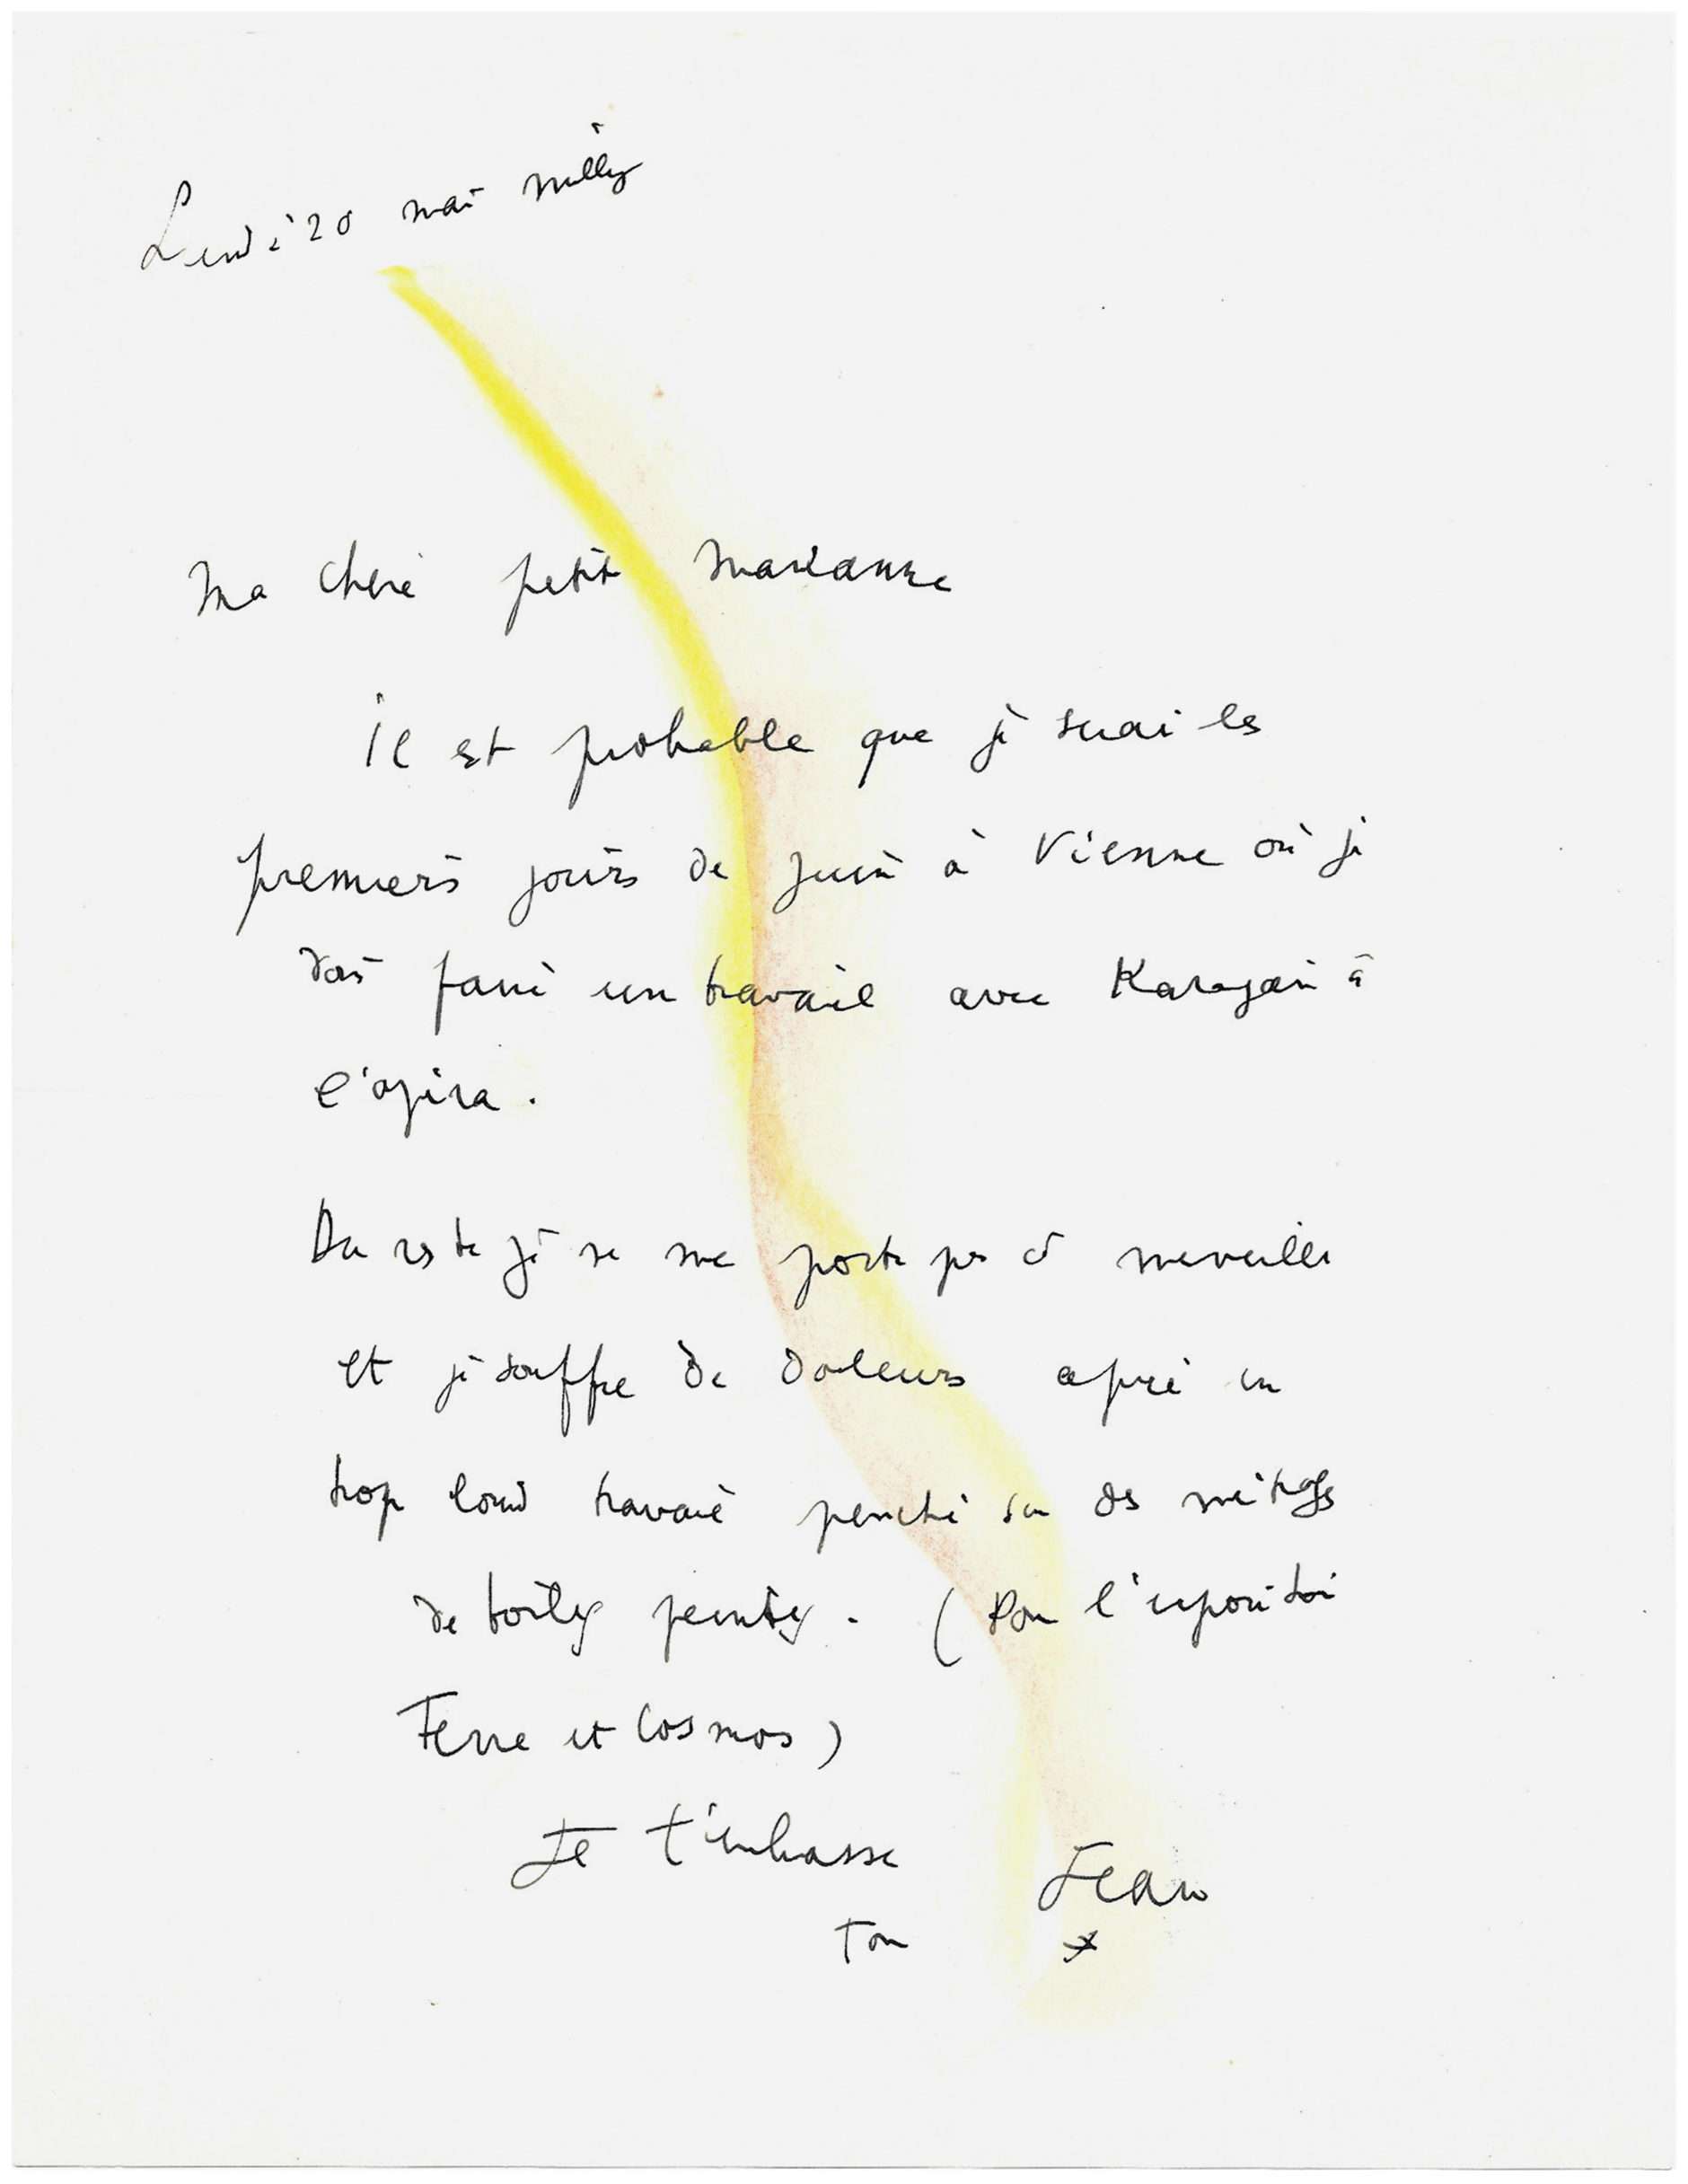 Lundi 20 mai Milly
Ma chère petite Marianne
Il est probable que je serai les
premiers jours de Juin à Vienne où je
dois faire un travail avec Karajan à
l'opéra.
Du reste je ne me porte pas à merveille
et je souffre de douleurs après un
trop lourd travail penché sur des métrages
de toiles peintes. (Pour l'exposition
Terre et Cosmos)
Je t'embrasse
ton Jean
*